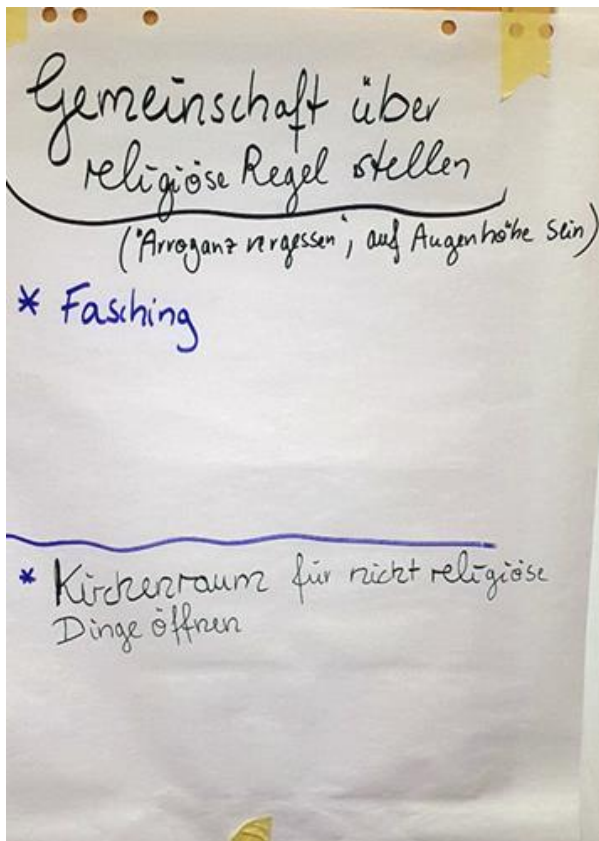 Gemeinschaft über
religiöse Regel stellen
("Arroganz vergessen", auf Augenhöhe sein)
* Fasching
* Kirchenraum für nicht religiöse
Dinge öffnen